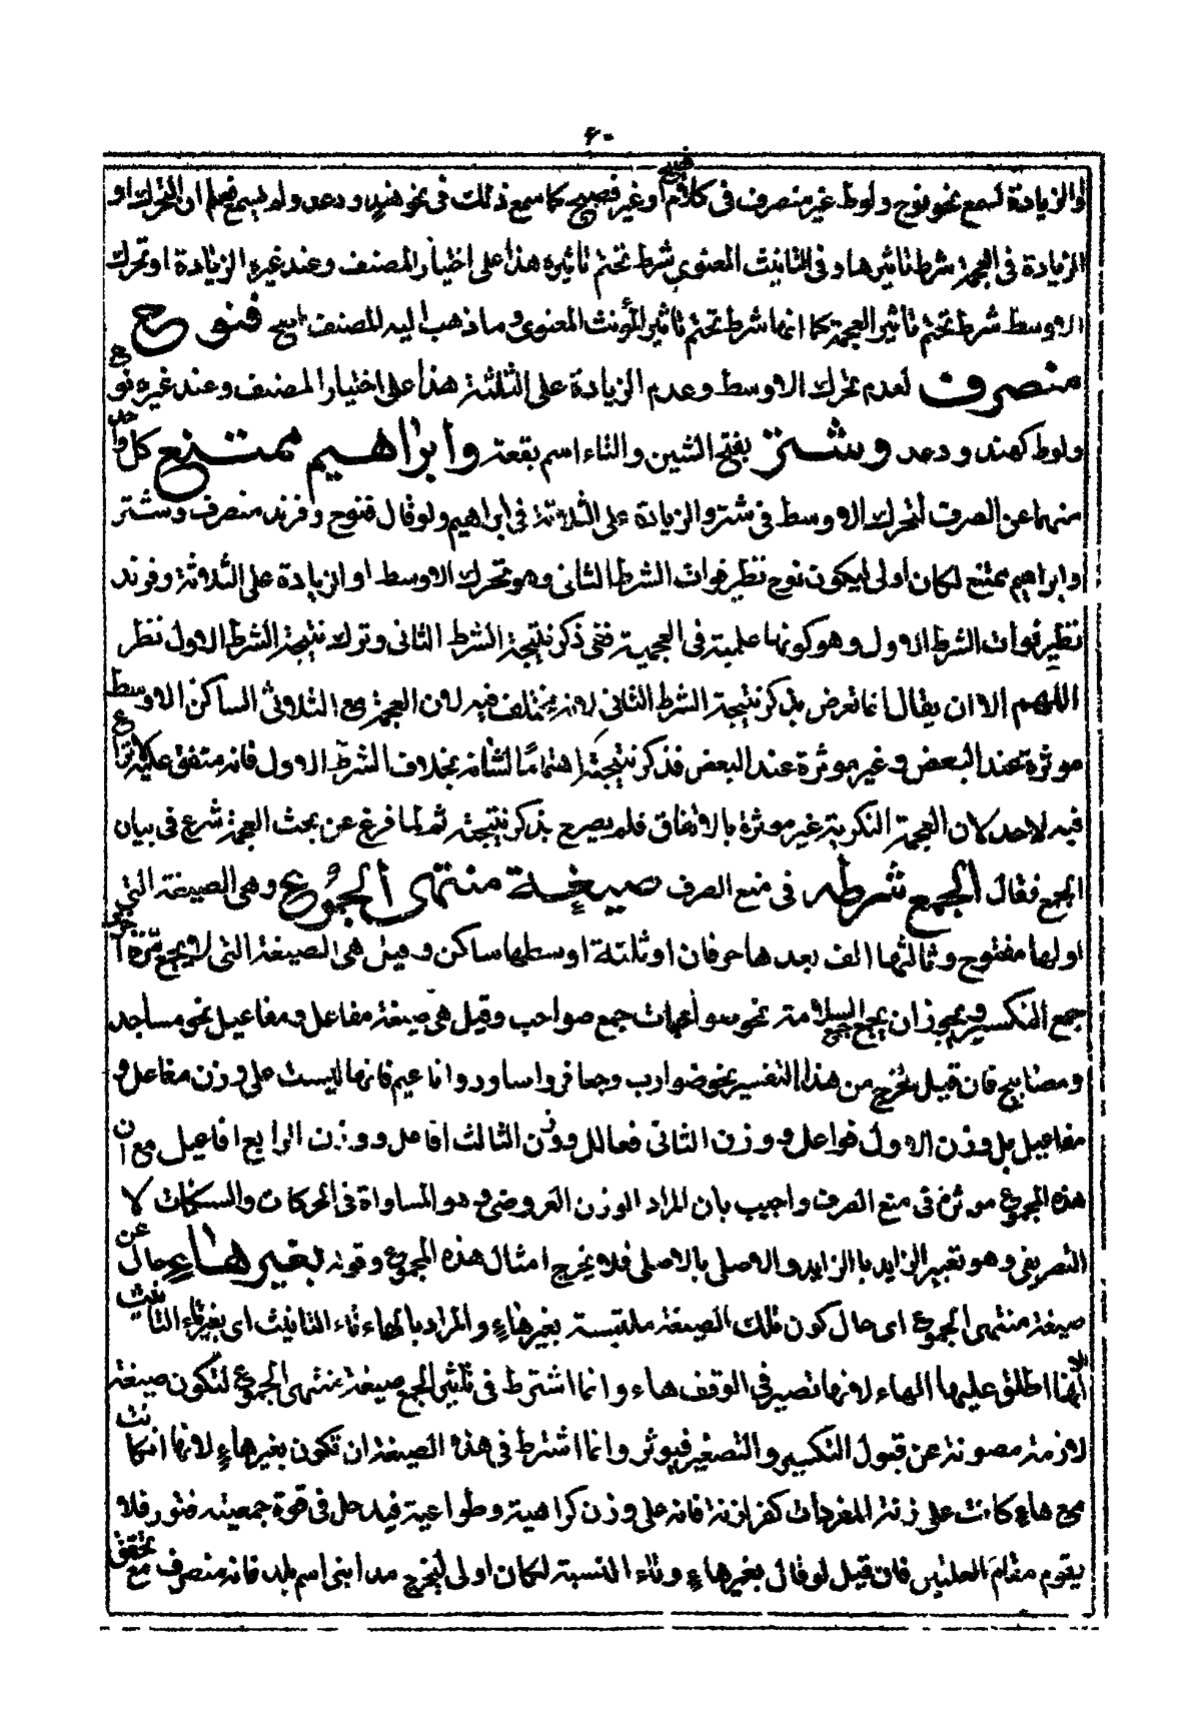 ٦٠
والزيادة لسمع نحو نوح ولوط غير منصرف في كلام فصيح او غير فصيح كما سمع ذلك في نحو هند ودعد ولم يسمع فعلم ان التحرك او
الزيادة في العجمة شرط تاثيرها وفي التانيث المعنوي شرط تحتم تاثيره هذا على اختيار المصنف وعند غيره الزيادة او تحرك
الاوسط شرط تحتم تاثير العجمة كما انها شرط تحتم تاثير المؤنث المعنوي وما ذهب اليه المصنف اصح فنوح
منصرف لعدم تحرك الاوسط وعدم الزيادة على الثلثة هذا على اختيار المصنف وعند غيره نوح
ولوط كهند ودعد وشتر بفتح الشين والتاء اسم بقعة وابراهيم ممتنع كل واحد
منهما عن الصرف لتحرك الاوسط في شتر والزيادة على الثلاثة في ابراهيم ولو قال فنوح وفرند منصرف وشتر
وابراهيم ممتنع لكان اولى ليكون نوح نظير فوات الشرط الثاني وهو تحرك الاوسط او الزيادة على الثلاثة وفرند
نظير فوات الشرط الاول وهو كونها علمية في العجمية ففي ذكر نتيجة الشرط الثاني وترك نتيجة الشرط الاول نظر
اللهم الا ان يقال انما تعرض بذكر نتيجة الشرط الثاني لانه يختلف فيه لان العجمة مع الثلاثي الساكن الاوسط
موثرة عند البعض وغير موثرة عند البعض فذكر نتيجته اهتمامًا لشانه بخلاف الشرط الاول فانه متفق عليه لا نزاع
فيه لاحد لان العجمة النكرية غير موثرة بالاتفاق فلم يصرح بذكر نتيجته ثم لما فرغ عن بحث العجمة شرع في بيان
الجمع فقال الجمع شرطه في منع الصرف صيغة منتهى الجموع وهي الصيغة التي
اولها مفتوح وثالثها الف بعدها حرفان او ثلثة اوسطها ساكن وقيل هي الصيغة التي لا يجمع مرّة اخرى
جمع التكسير ويجوز ان يجمع جمع السلامة نحو صواحبات جمع صواحب وقيل هي صيغة مفاعل ومفاعيل نحو مساجد
ومصابيح فان قيل يخرج من هذا التفسير نحو ضوارب وجعافر واساور واناعيم فانها ليست على وزن مفاعل و
مفاعيل بل وزن الاول فواعل ووزن الثاني فعالل ووزن الثالث افاعل ووزن الرابع افاعيل مع ان
هذه الجموع موثرة في منع الصرف واجيب بان المراد الوزن العروضي وهو المساواة في الحركات والسكنات لا
التصريفي وهو تعبير الزايد بالزايد والاصلي بالاصلي فلا يخرج امثال هذه الجموع وقوله بغير هاء حال عن
صيغة منتهى الجموع اى حال كون تلك الصيغة ملتبسة بغير هاءٍ والمراد بالهاء تاء التانيث اى بغير تاء التانيث
الا انها اطلق عليها الهاء لانها تصير في الوقف هاء وانما اشترط في تاثير الجمع صيغة منتهى الجموع لتكون صيغته
لازمة مصونة عن قبول التكسير والتصغير فيوثر وانما اشترط في هذه الصيغة ان تكون بغير هاءٍ لانها ان كانت
مع هاءٍ كانت على زنة المفردات كفرازنة فانه على وزن كراهية وطواعية فيدخل في قوة جمعيته فتور فلا
يقوم مقام العلتين فان قيل لو قال بغير هاءٍ وياء النسبة لكان اولى ليخرج مدايني اسم بلد فانه منصرف مع تحقق